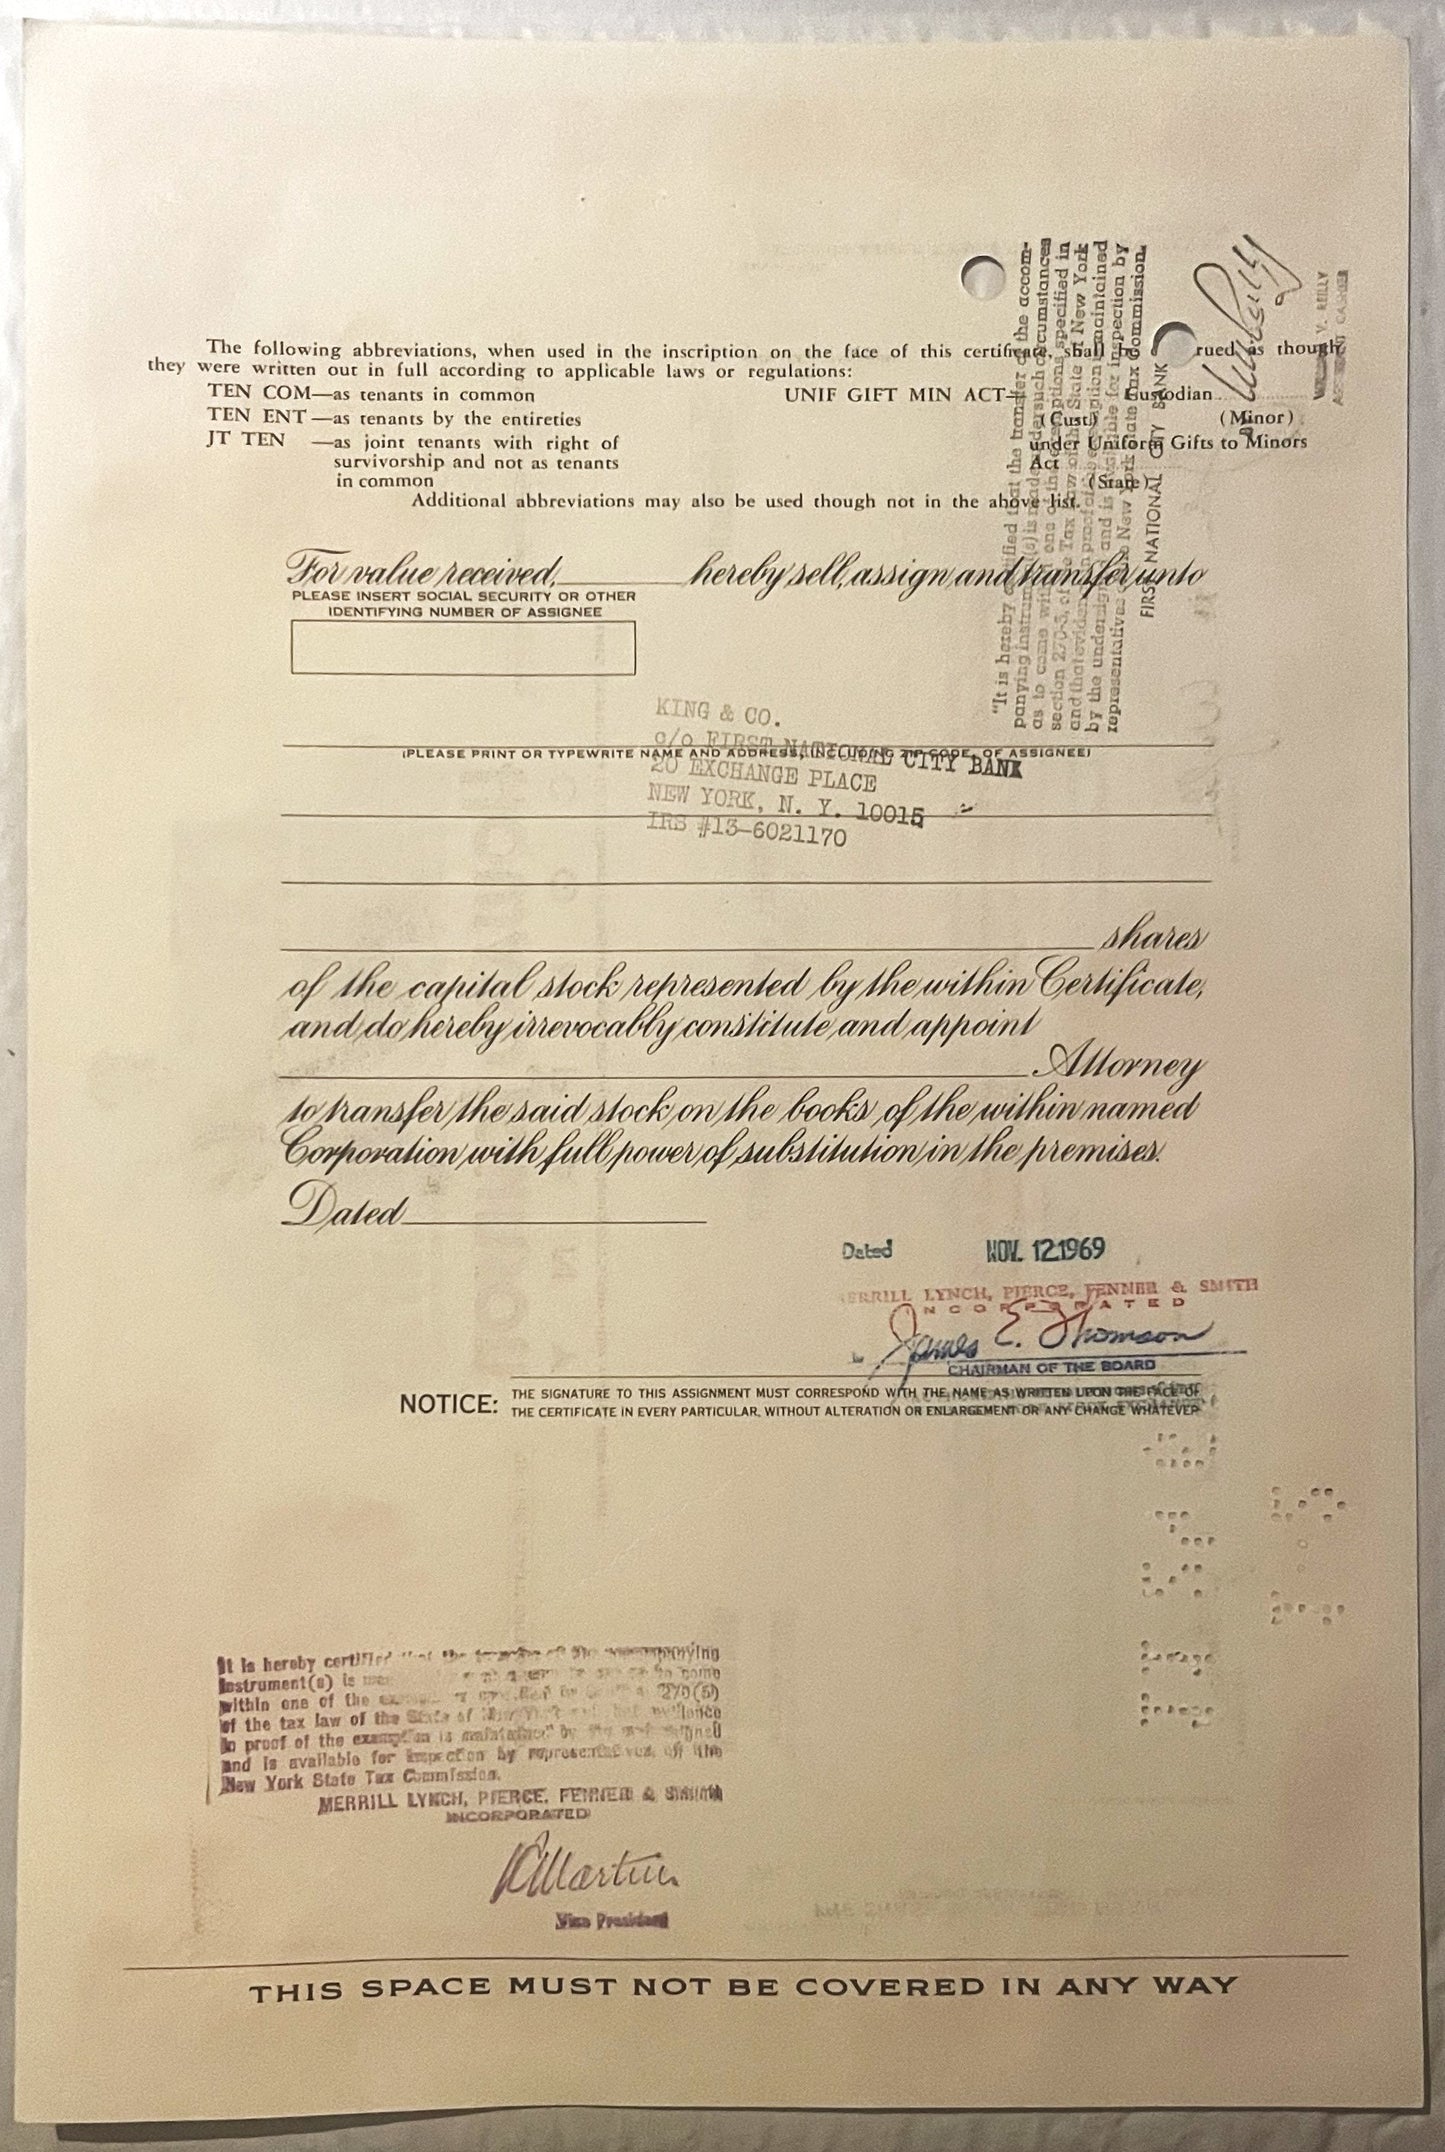 The following abbreviations, when used in the inscription on the face of this certificate, shall be rued as though
they were written out in full according to applicable laws or regulations:
TEN COM—as tenants in common
UNIF GIFT MIN ACT— Custodian
TEN ENT—as tenants by the entireties
(Cust) (Minor)
JT TEN —as joint tenants with right of
under Uniform Gifts to Minors
survivorship and not as tenants
Act
in common
(State)
Additional abbreviations may also be used though not in the above list.
"It is hereby that the transfer of the accom-
panying instrument(s) is under such circumstances
as to come within one of the exemptions specified in
section 270-5, of the Tax Law of the State of New York
and that evidence in proof of exemption maintained
by the undersigned and is available for inspection by
representatives of the New York State Tax Commission.
FIRST NATIONAL CITY BANK
V. REILLY
For value received, hereby sell, assign and transfer unto
PLEASE INSERT SOCIAL SECURITY OR OTHER
IDENTIFYING NUMBER OF ASSIGNEE
KING & CO.
c/o FIRST NATIONAL CITY BANK
(PLEASE PRINT OR TYPEWRITE NAME AND ADDRESS, INCLUDING ZIP CODE, OF ASSIGNEE)
20 EXCHANGE PLACE
NEW YORK, N. Y. 10015
IRS #13-6021170
shares
of the capital stock represented by the within Certificate,
and do hereby irrevocably constitute and appoint
Attorney
to transfer the said stock on the books of the within named
Corporation with full power of substitution in the premises.
Dated
Dated NOV. 12 1969
MERRILL LYNCH, PIERCE, FENNER & SMITH
INCORPORATED
James E. Thomson
CHAIRMAN OF THE BOARD
NOTICE: THE SIGNATURE TO THIS ASSIGNMENT MUST CORRESPOND WITH THE NAME AS WRITTEN UPON THE FACE OF
THE CERTIFICATE IN EVERY PARTICULAR, WITHOUT ALTERATION OR ENLARGEMENT OR ANY CHANGE WHATEVER
It is hereby certified that the transfer of the accompanying
instrument(s) is to come
within one of the 270(5)
of the tax law of the State of New York and that evidence
in proof of the exemption is maintained by the undersigned
and is available for inspection by representatives of the
New York State Tax Commission.
MERRILL LYNCH, PIERCE, FENNER & SMITH
INCORPORATED
Martin
Vice President
THIS SPACE MUST NOT BE COVERED IN ANY WAY